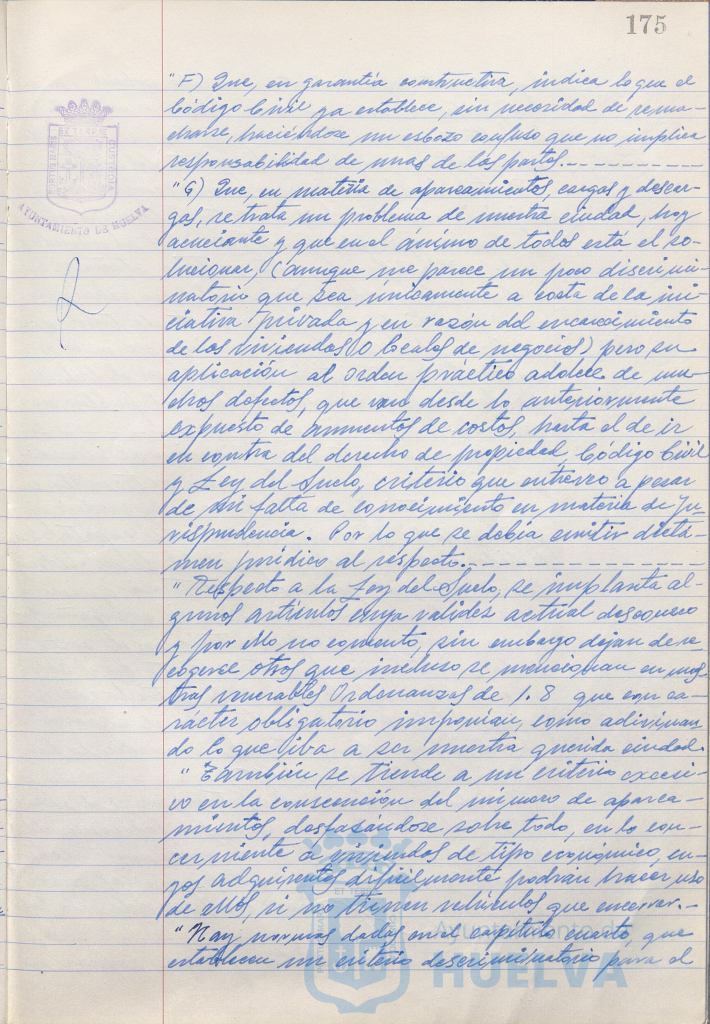 175
"F) Que, en garantía constructiva, indica lo que el
Código Civil ya establece, sin necesidad de rema-
charse, haciéndose un esbozo confuso que no implica
responsabilidad de unas de las partes.
"G) Que, en materia de aparcamientos, cargas y descar-
gas, se trata un problema de nuestra ciudad, hoy
acuciante y que en el ánimo de todos está el so-
lucionar, (aunque me parece un poco discrimi-
natorio que sea únicamente a costa de la ini-
ciativa privada y en razón del encarecimiento
de las viviendas o locales de negocios) pero su
aplicación al orden práctico adolece de mu-
chos defectos, que van desde lo anteriormente
expuesto de aumentos de costos, hasta el de ir
en contra del derecho de propiedad, Código Civil
y Ley del Suelo, criterio que entreveo a pesar
de mi falta de conocimiento en materia de Ju-
risprudencia. Por lo que se debía emitir dictá-
men jurídico al respecto.
"Respecto a la Ley del Suelo, se implanta al-
gunos artículos cuya validez actual desconozco
y por ello no comento, sin embargo dejan de re-
cogerse otros que incluso se mencionan en nues-
tras venerables Ordenanzas de 1.8 que con ca-
rácter obligatorio imponían, como adivinan-
do lo que iba a ser nuestra querida ciudad.
"También se tiende a un criterio excesi-
vo en la consecención del número de aparca-
mientos, desfasándose sobre todo, en lo con-
cerniente a viviendas de tipo económico, cu-
yos adquirentes dificilmente podrán hacer uso
de ellos, si no tienen vehículos que encerrar.-
"Hay normas dadas en el capítulo cuarto, que
establecen un criterio descriminatorio para el
AYUNTAMIENTO DE HUELVA
Ayuntamiento de
HUELVA